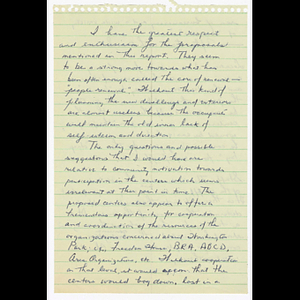 I have the greatest respect
and enthusiasm for the proposals
mentioned in this report. They seem
to be a strong move towards what has
been often enough called the core of renewal —
"people renewal". Without this kind of
planning the new dwellings and exteriors
are almost useless because the occupants
will maintain the old inner lack of
self esteem and direction.
The only questions and possible
suggestions that I would have are
relative to community motivation towards
participation in the centers which seems
irrelevant at this point in time. The
proposed centers also appear to offer a
tremendous opportunity for cooperation
and coordination of the resources of the
organizations concerned about Washington
Park, ie. Freedom House, BRA, ABCD,
Area Organizations, etc. Without cooperation
on that level, it would seem that the
centers would bog down, lost in a